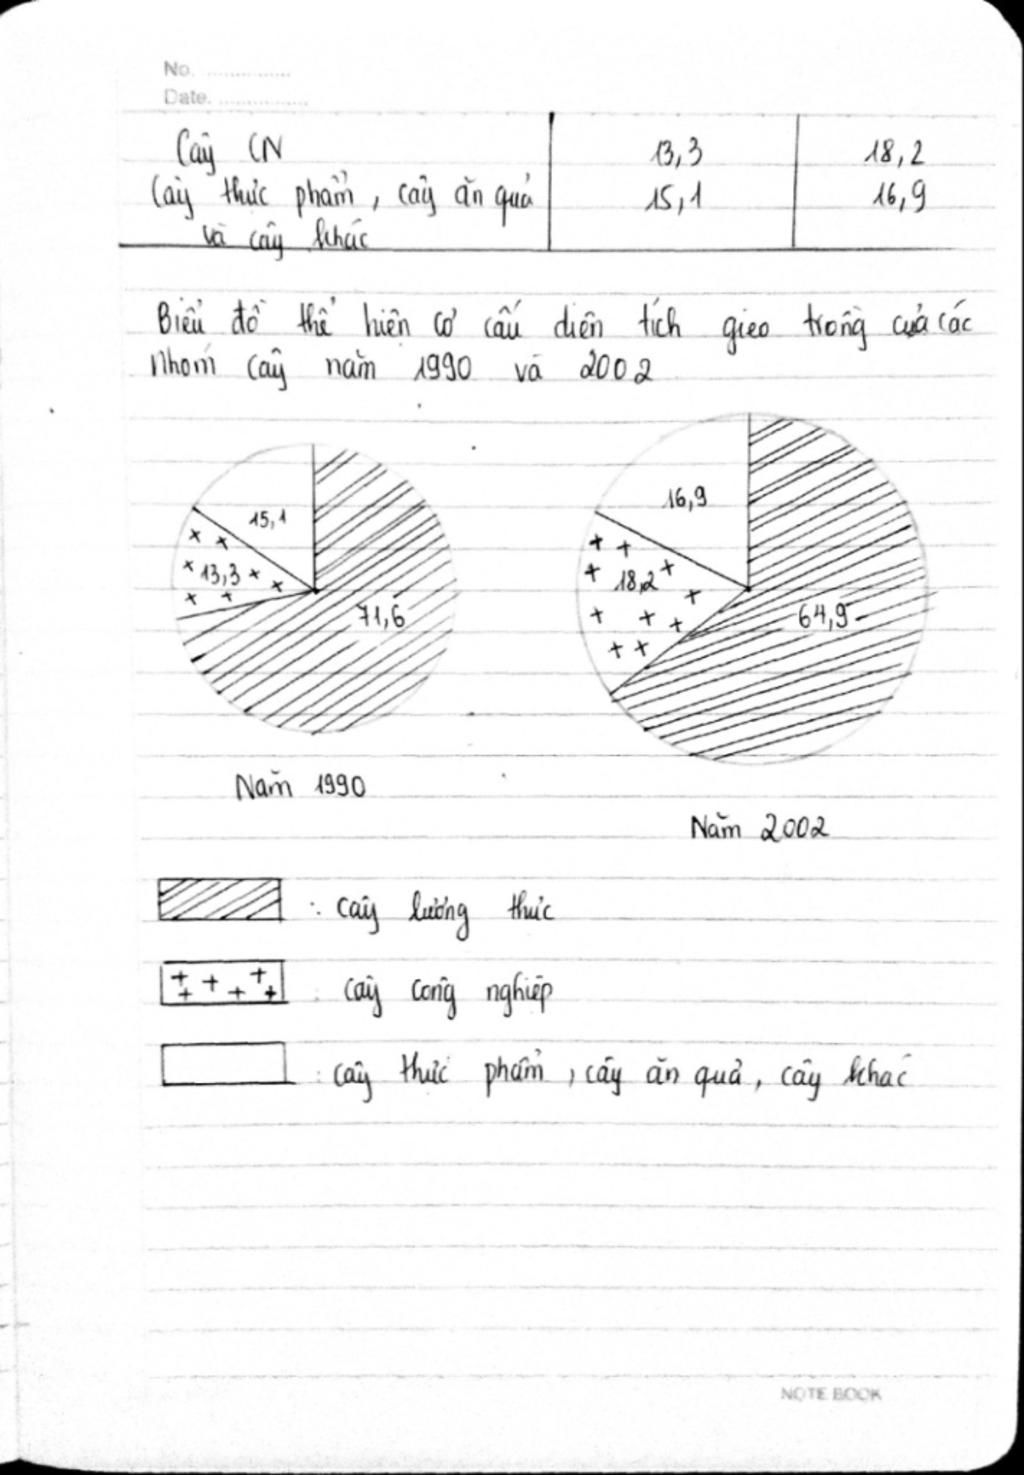 No. ................
Date. ................
Cây CN 13,3 18,2
Cây thực phẩm, cây ăn quả 15,1 16,9
và cây khác
Biểu đồ thể hiện cơ cấu diện tích gieo trồng của các
nhóm cây năm 1990 và 2002
16,9
15,1
13,3 18,2
71,6 64,9
Năm 1990
Năm 2002
: cây lương thực
: cây công nghiệp
: cây thực phẩm, cây ăn quả, cây khác
NOTE BOOK